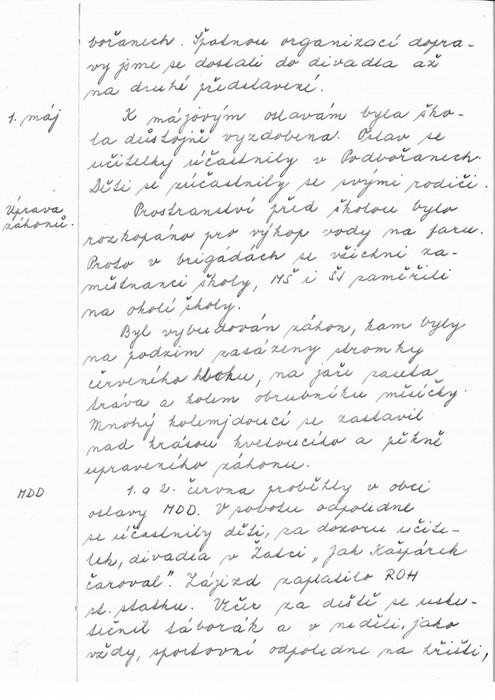 bořanech. Špatnou organizací dopra-
vy jsme se dostali do divadla až
na druhé představení.
1. máj
K májovým oslavám byla ško-
la důstojně vyzdobena. Oslav se
učitelky účastnily v Podbořanech.
Děti se zúčastnily se svými rodiči.
Úprava
záhonů.
Prostranství před školou bylo
rozkopáno pro výkop vody na faru.
Proto v brigádách se všichni za-
městnanci školy, MŠ i ŠJ zaměřili
na okolí školy.
Byl vybudován záhon, kam byly
na podzim zasázeny stromky
červeného hlohu, na jaře zaseta
tráva a kolem obrubníku měsíčky.
Mnohý kolemjdoucí se zastavil
nad krásou kvetoucího a pěkně
upraveného záhonu.
MDD
1. a 2. června proběhly v obci
oslavy MDD. V sobotu odpoledne
se účastnily děti, za dozoru učite-
lek, divadla v Žatci "Jak Kašpárek
čaroval". Zájezd zaplatilo ROH
st. statku. Večer za deště se usku-
tečnil táborák a v neděli, jako
vždy, sportovní odpoledne na hřišti,